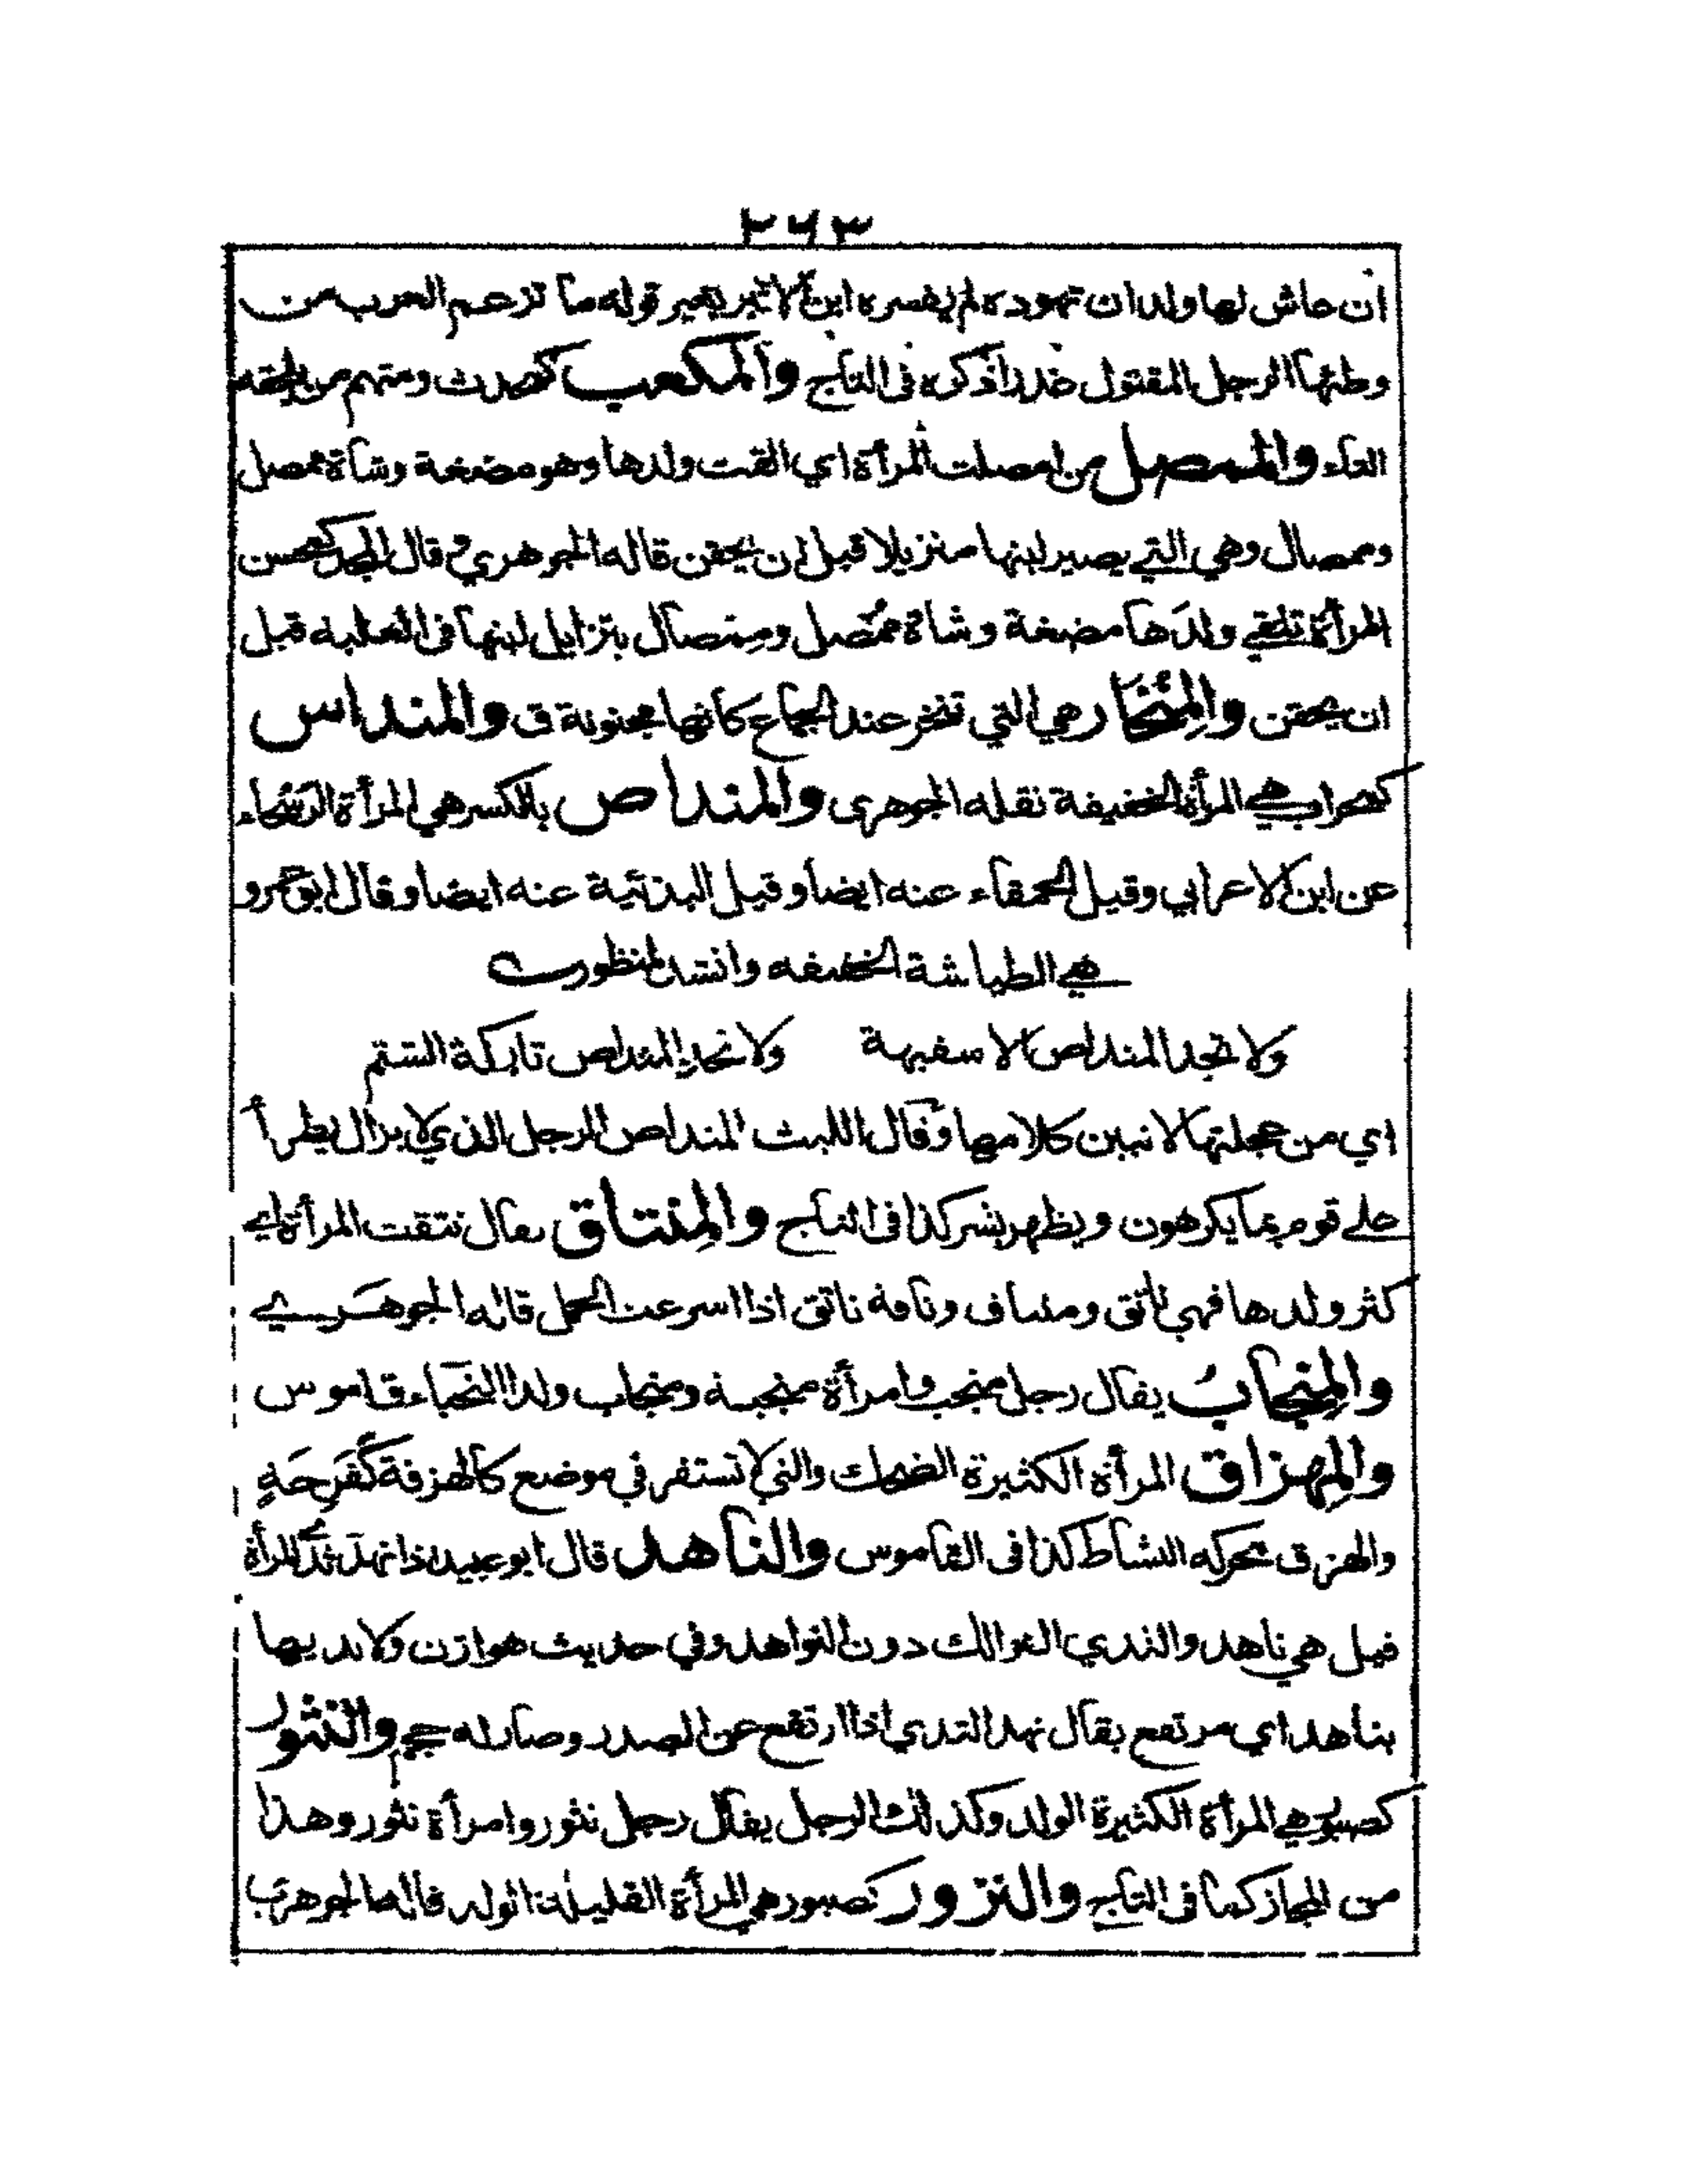 ٢٦٣
ان عاش لها ولد ان تموده لم يفسره ابن الاثير بغير قوله ما تزعم العرب من
وطئها الرجل المقتول غدرا ذكره فى التاج والمكعب كمحدث ومنهم من يلحقه
التاء والممصل من امصلت المرأة اي القت ولدها وهو مضغة وشاة ممصل
وممصال وهي التي يصير لبنها متزيلا قبل ان يحقن قاله الجوهري و قال المجد كمحسن
المرأة تلقي ولدَها مضغة وشاة ممُصل وممصال يتزايل لبنها فى العلبه قبل
ان يحقن والمِنْخَار هي التي تنخر عند الجماع كانها مجنونة ق والمنداس
كمحراب هي المرأة الخفيفة نقله الجوهرى والمنداص بالكسر هي المرأة الرسحاء
عن ابن الاعرابي وقيل الحمقاء عنه ايضا وقيل البذئية عنه ايضا وقال ابو عمرو
هي الطياشة الخفيفه وانشد لمنظور
ولا تجد المنداص الا سفيهة ولا تجد المنداص تاركة الشتم
اي من عجلتها لا تبين كلامها وقال الليث المنداص الرجل الذي لا يزال يطرأ
على قوم بما يكرهون ويظهر بشر كذا فى التاج والمِنتاق يقال نتقت المرأة اي
كثر ولدها فهي ناتق ومنتاق وناقة ناتق اذا اسرعت الحمل قاله الجوهري
والمِنجابُ يقال رجل منجب وامرأة منجبة ومنجاب ولدا النجباء قاموس
والمِهزاق المرأة الكثيرة الضحك والتي لا تستقر في موضع كالهزقة كَفَرِحَةٍ
والهزق محركه النشاط كذا فى القاموس والناهد قال ابو عبيد اذا نهد ثدي المرأة
قيل هي ناهد والثدي الفوالك دون النواهد وفي حديث هوازن ولا ثديها
بناهد اي مرتفع يقال نهد الثدي اذا ارتفع عن الصدر وصار له حجم والنثور
كصبور هي المرأة الكثيرة الولد وكذلك الرجل يقال رجل نثور وامرأة نثور وهذا
من المجاز كما فى التاج والنزور كصبور هي المرأة القليلة الولد قاله الجوهري